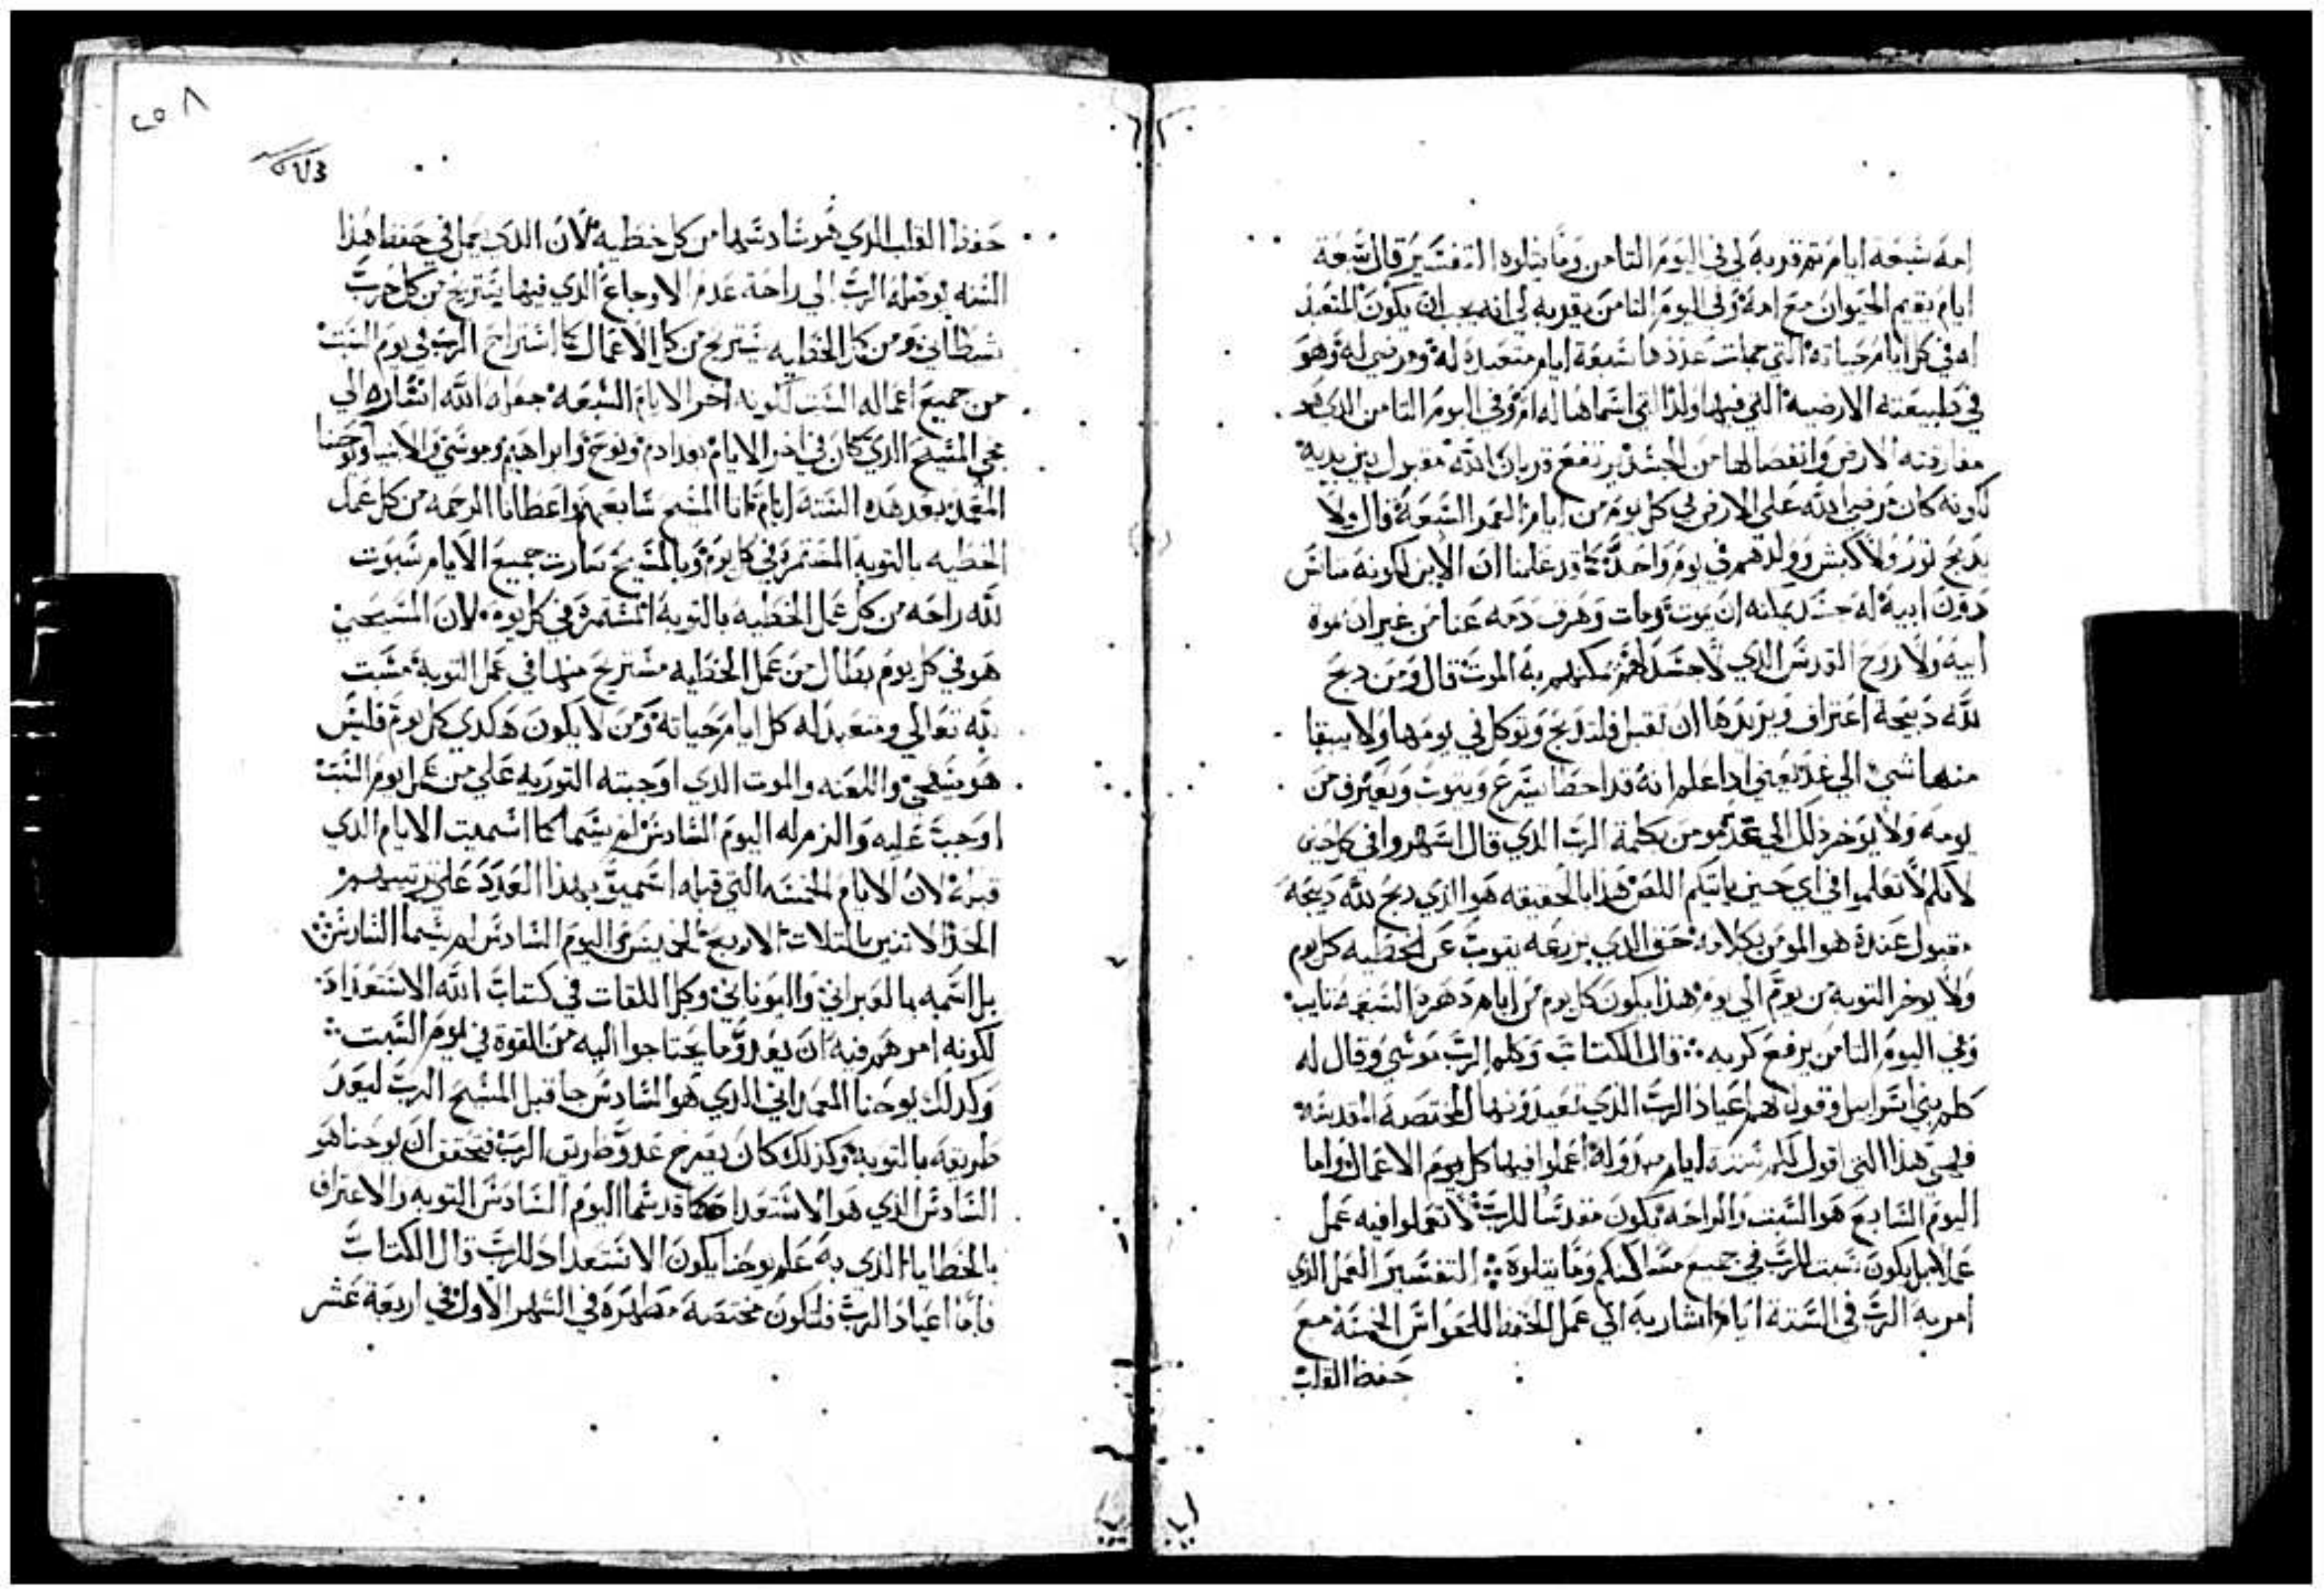 امه سبعة ايام تم قربه لي في اليوم الثامن وما يتلوه التفسير قال سبعة
ايام يقيم الحيوان مع امه وفي اليوم الثامن يقربه لي انه يجب ان يكون المتعبد
له في كل ايام حياته التي جملت عددها سبعة ايام متعبد له ومرضي له وهو
في طبيعته الارضية التي فيها ولد التي اسماها له ام وفي اليوم الثامن الذي هو
مفارقته الارض وانفصالها من الجسد يرتفع قربان لله مقبول بين يديه
لكونه كان مرضي لله علي الارض في كل يوم من ايام العمر السبعة قال ولا
يدبح ثور ولا كبش وولدهم في يوم واحد قد علمنا ان الابن لكونه
دون ابيه له جسد يمكنه ان يموت ومات وهرق دمه عنا من غير ان يموت
ابيه ولا روح القدس الذي لا جسد لهم يمكنهم به الموت قال ومن دبح
لله دبيحة اعتراف ويريدها ان تقبل فلتدبح وتوكل في يومها ولا يبقا
منها شي الي غد يعني ادا علم انه قد اخطا يسرع ويتوب ويعترف من
يومه ولا يوخر ذلك الي غد مومن بكلمة الرب الذي قال اسهروا في كل حين
لانكم لا تعلموا في اي حين ياتيكم اللص هذا بالحقيقه هو الذي دبح لله دبيحة
مقبول عنده هو المومن بكلامه حق الذي بزرعه يتوب عن الخطيه كل يوم
ولا يوخر التوبه من يوم الي يوم هذا يكون كل يوم من ايام دهره السبعة تايب
وفي اليوم الثامن يرفع كربه قال الكتاب وكلم الرب موسي وقال له
كلم بني اسراييل وقول لهم اعياد الرب الذي تعيدونها المختصة المقدسة
فهي هذا التي اقول لكم ستة ايام اعملوا فيها كل يوم الاعمال واما
اليوم السابع هو السبت والراحه يكون مقدسا للرب لا تعملوا فيه عمل
عملا بل يكون سبت للرب في جميع مساكنكم وما يتلوه التفسير العمل الذي
امر به الرب في الستة ايام اشار به الي عمل الحفظ للحواس الخمسة مع
حفظ القلب
٢٥٨
حفظ القلب الذي هو سادسها من كل خطية لان الذي يعمل في حفظ هذا
الستة يوصله الرب الي راحة عدم الاوجاع الذي فيها يستريح من كل حرب
شيطاني ومن كل الخطايه يستريح من كل الاعمال كما استراح الرب في يوم السبت
من جميع اعماله السبت لكونه اخر الايام السبعة جعله الله اشاره الي
مجي المسيح الذي كان في اخر الايام بعد ادم ونوح وابراهيم وموسي والانبيا ويوحنا
المعمد بعد هذه الستة ايام اتانا المسيح سابعهم واعطانا الرحمه من كل عمل
الخطيه بالتوبة المستمرة في كل يوم وبالمسيح صارت جميع الايام سبوت
لله راحه من كل عمل الخطيه بالتوبة المستمرة في كل يوم لان المسيحي
هو في كل يوم بطال من عمل الخطيه مستريح منها في عمل التوبة مسبت
لله تعالي ومتعبد له كل ايام حياته ومن لا يكون هكدي كل يوم فليس
هو مسيحي واللعنه والموت الذي اوجبته التوريه علي من عمل يوم السبت
اوجبت عليه والزم له اليوم السادس لم يسما كما اسميت الايام الذي
قبله لان الايام الخمسه التي قبله اسميو بهذا العدد علي ترتيبهم
الحد الاتنين التلات الاربع الخميس اليوم السادس لم يسما السادس
بل اسمه بالعبراني واليوناني وكل اللغات في كتاب الله الاستعداد
لكونه امرهم فيه ان يعدو ما يحتاجوا اليه من القوة في يوم السبت
وكدلك يوحنا المعمداني الذي هو السادس جا قبل المسيح الرب ليعد
طريقه بالتوبه وكذلك كان يصرخ عدو طريق الرب فتحقق ان يوحنا هو
السادس الذي هو الاستعداد كما قد سما اليوم السادس التوبه والاعتراف
بالخطايا الذي به علم يوحنا يكون الاستعداد للرب قال الكتاب
فاما اعياد الرب فلتكون مختصة مطهرة في الشهر الاول في اربعة عشر